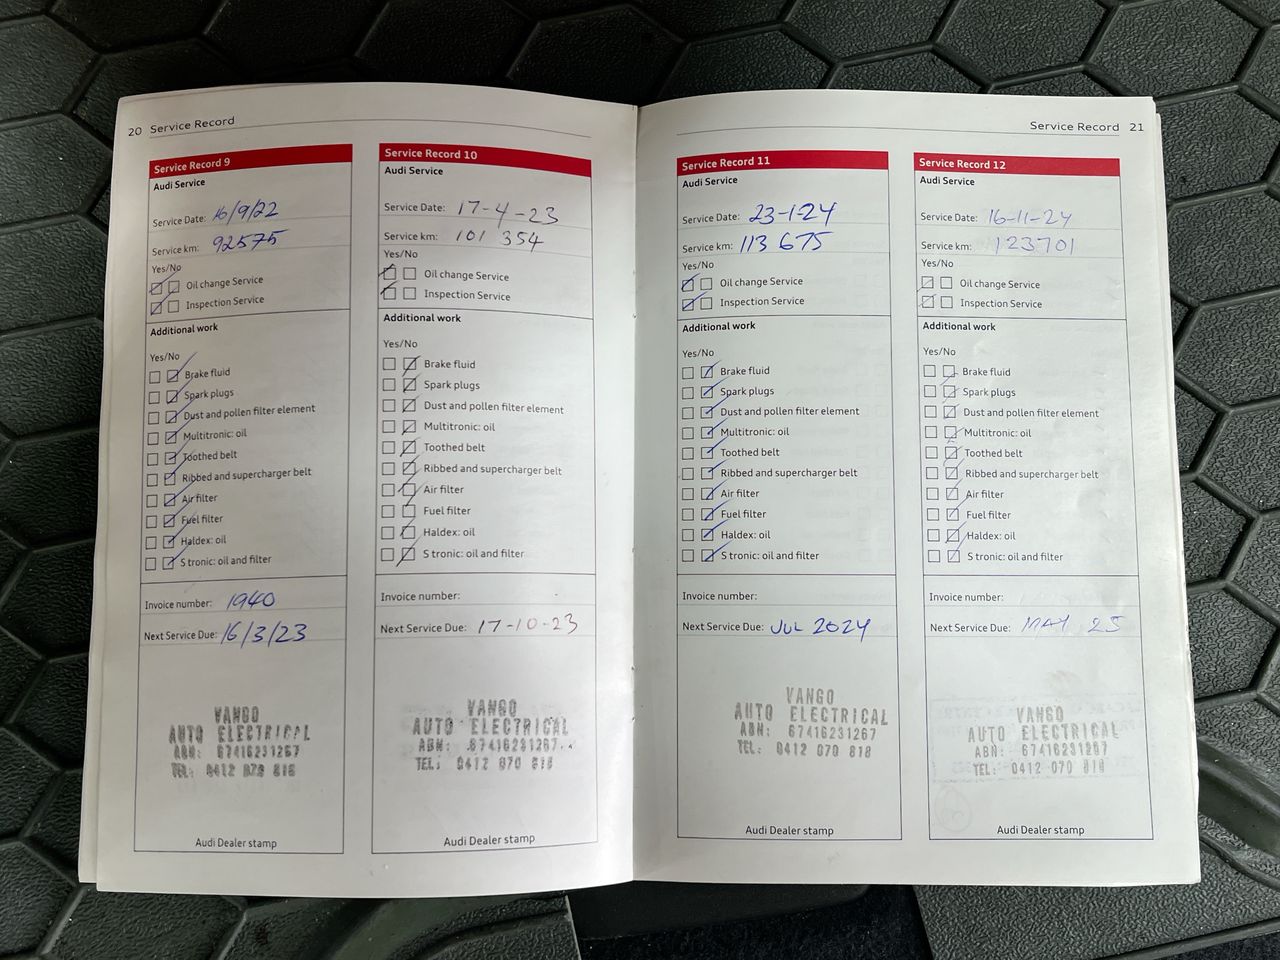 20 Service Record
Service Record 9
Audi Service
Service Date: 16/9/22
Service km: 92575
Yes/No
Oil change Service
Inspection Service
Additional work
Yes/No
Brake fluid
Spark plugs
Dust and pollen filter element
Multitronic: oil
Toothed belt
Ribbed and supercharger belt
Air filter
Fuel filter
Haldex: oil
S tronic: oil and filter
Invoice number: 1940
Next Service Due: 16/3/23
VANGO
AUTO ELECTRICAL
ABN: 67416231267
TEL: 0412 070 818
Audi Dealer stamp
Service Record 10
Audi Service
Service Date: 17-4-23
Service km: 101 354
Yes/No
Oil change Service
Inspection Service
Additional work
Yes/No
Brake fluid
Spark plugs
Dust and pollen filter element
Multitronic: oil
Toothed belt
Ribbed and supercharger belt
Air filter
Fuel filter
Haldex: oil
S tronic: oil and filter
Invoice number:
Next Service Due: 17-10-23
VANGO
AUTO ELECTRICAL
ABN: 67416231267
TEL: 0412 070 818
Audi Dealer stamp
Service Record 21
Service Record 11
Audi Service
Service Date: 23-1-24
Service km: 113 675
Yes/No
Oil change Service
Inspection Service
Additional work
Yes/No
Brake fluid
Spark plugs
Dust and pollen filter element
Multitronic: oil
Toothed belt
Ribbed and supercharger belt
Air filter
Fuel filter
Haldex: oil
S tronic: oil and filter
Invoice number:
Next Service Due: JUL 2024
VANGO
AUTO ELECTRICAL
ABN: 67416231267
TEL: 0412 070 818
Audi Dealer stamp
Service Record 12
Audi Service
Service Date: 16-11-24
Service km: 123701
Yes/No
Oil change Service
Inspection Service
Additional work
Yes/No
Brake fluid
Spark plugs
Dust and pollen filter element
Multitronic: oil
Toothed belt
Ribbed and supercharger belt
Air filter
Fuel filter
Haldex: oil
S tronic: oil and filter
Invoice number:
Next Service Due: MAY 25
VANGO
AUTO ELECTRICAL
ABN: 67416231267
TEL: 0412 070 818
Audi Dealer stamp